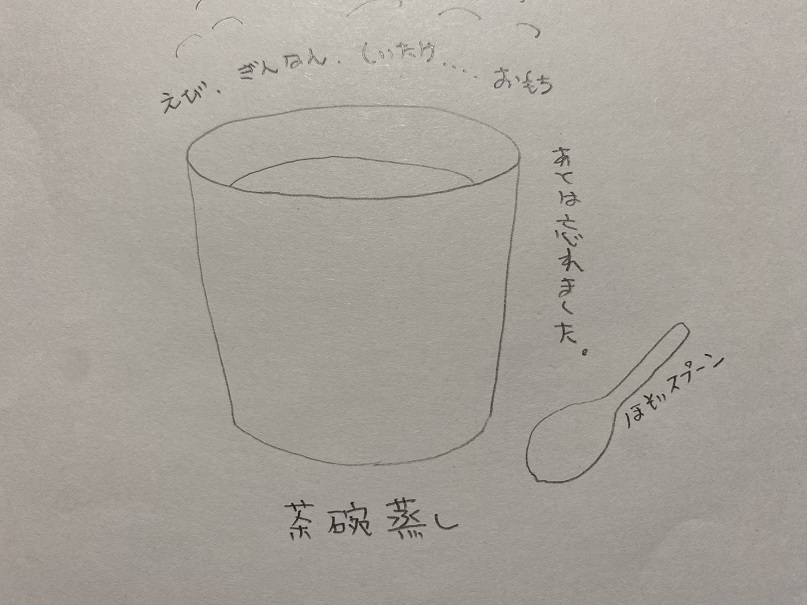 えび、ぎんなん、しいたけ.... おもち
あとは忘れました。
ほそいスプーン
茶碗蒸し